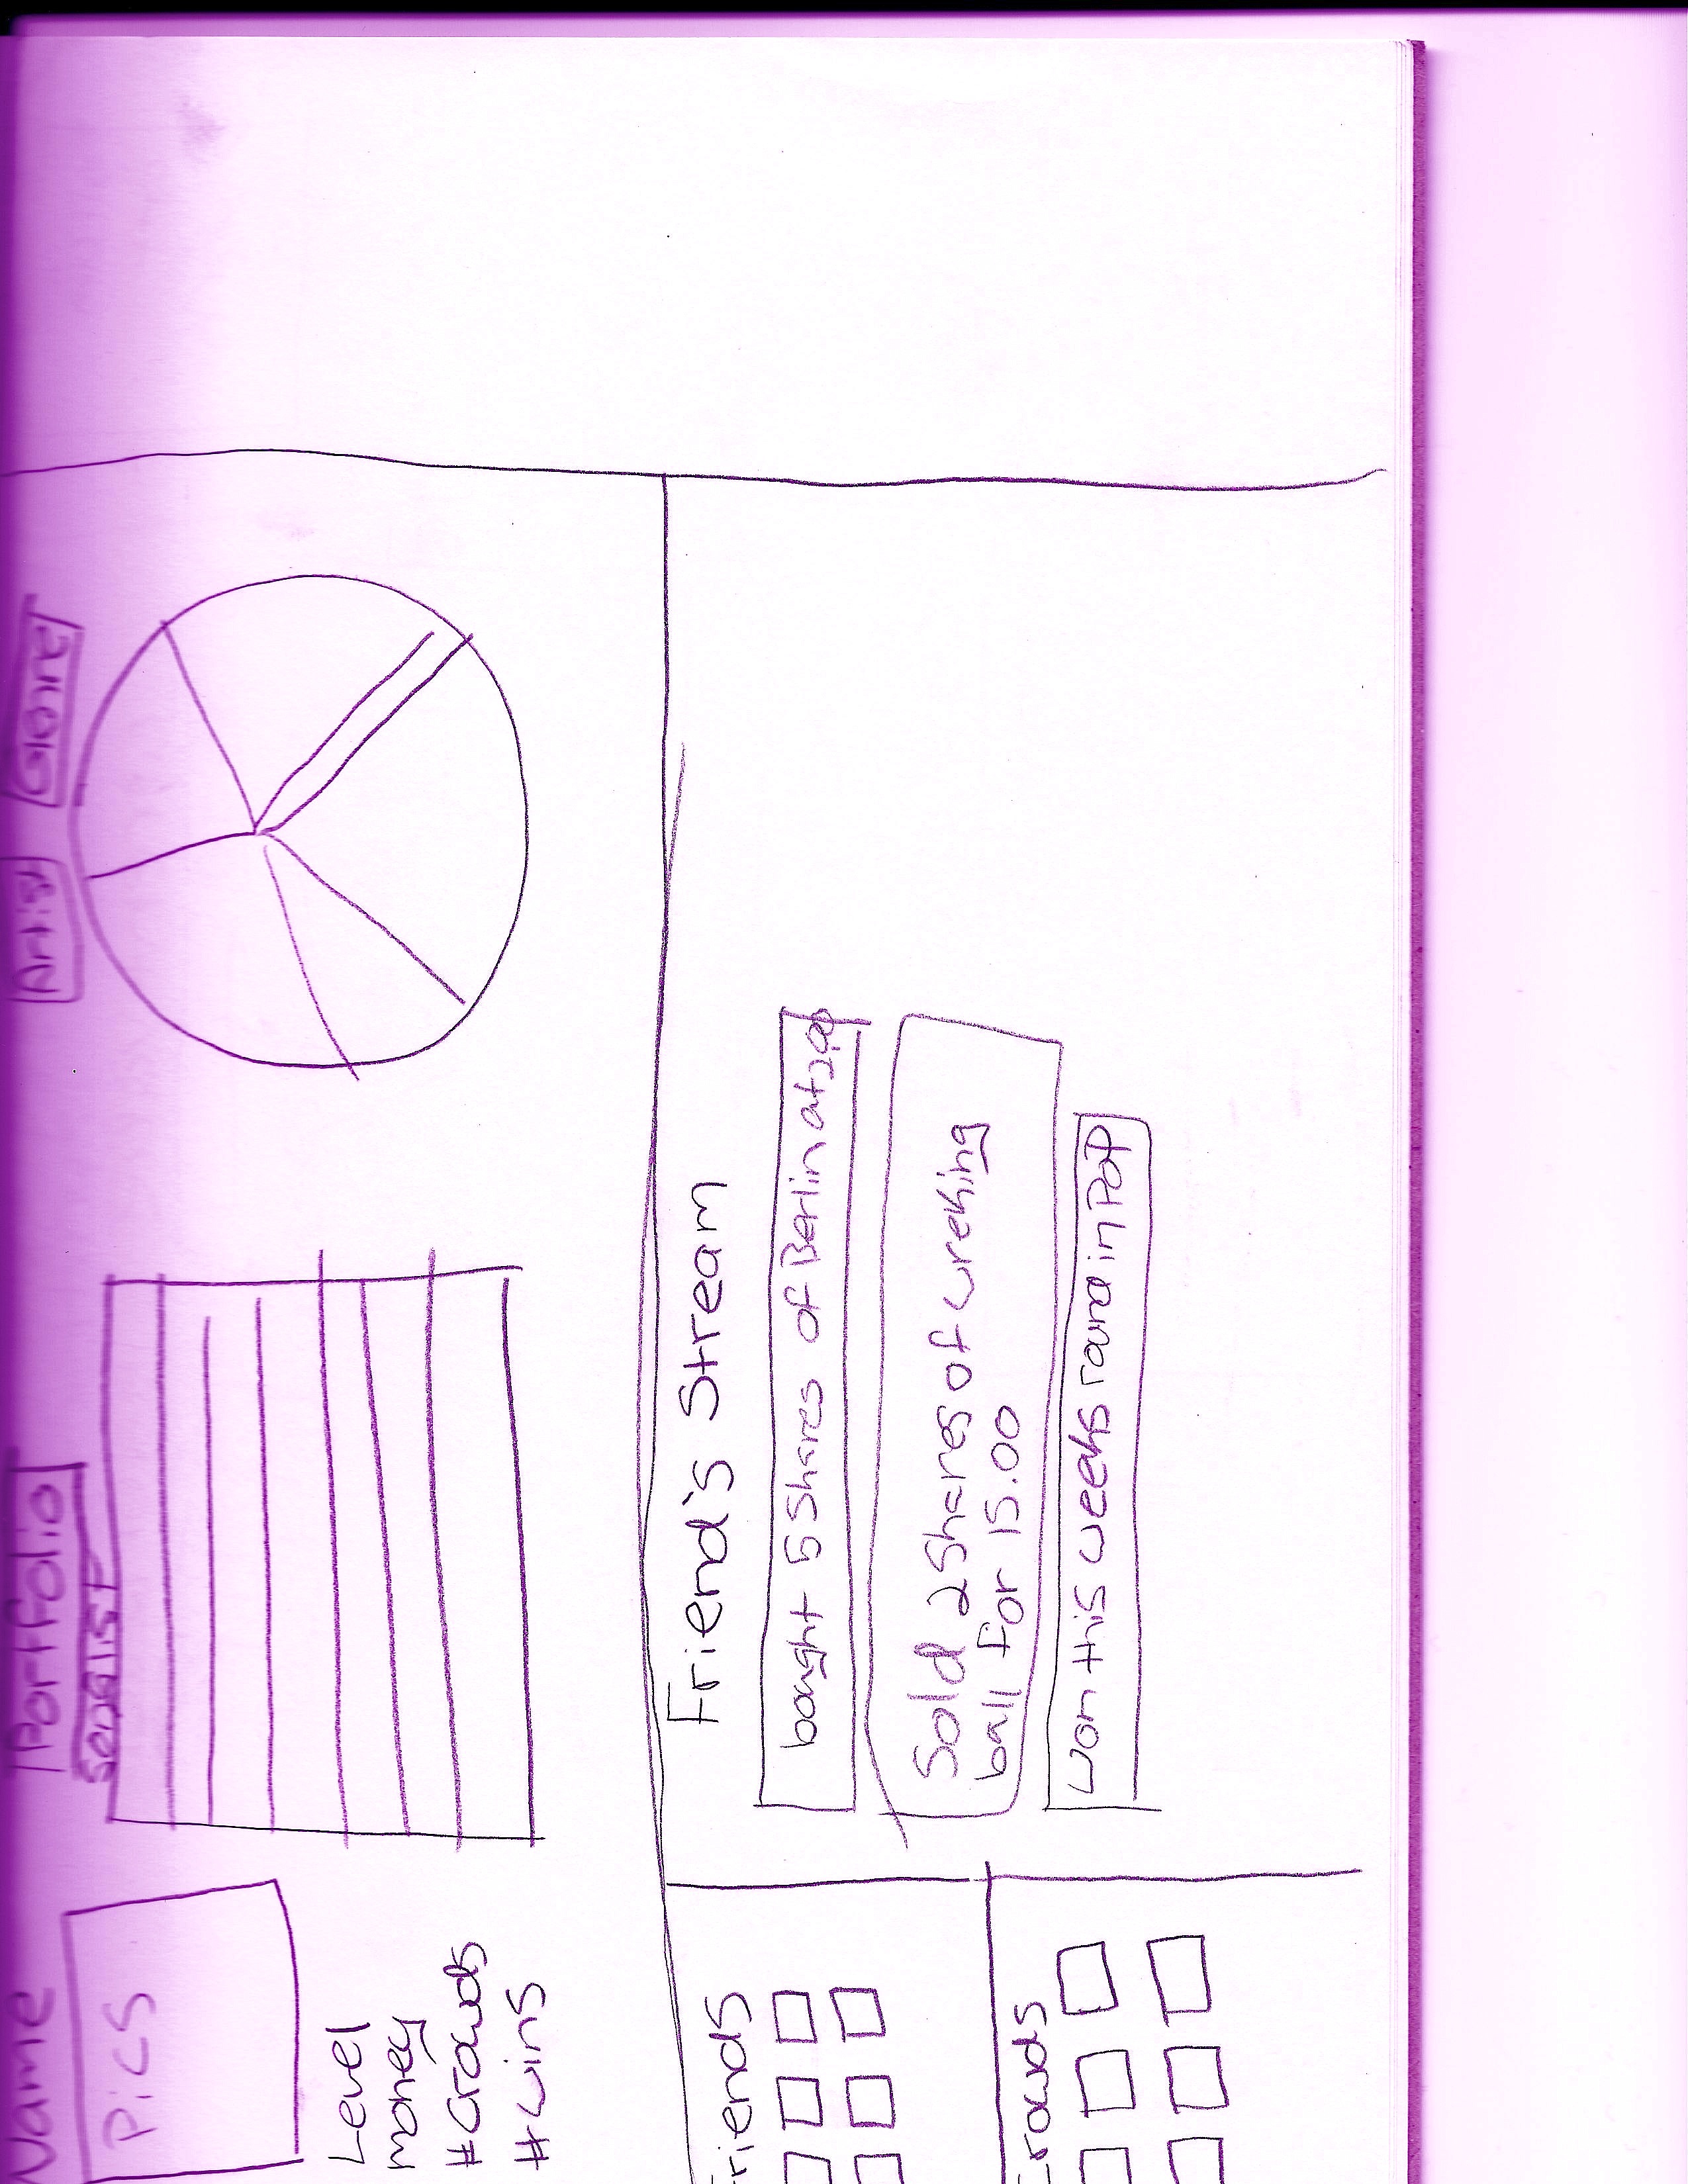 Name
Pics
Level
money
#Crowds
#wins
Portfolio
songlist
Artist
Genre
Friends
Crowds
Friend's Stream
bought 5 Shares of Berlin at 2.00
Sold 2 Shares of wreking
ball for 15.00
won this weeks round in Pop